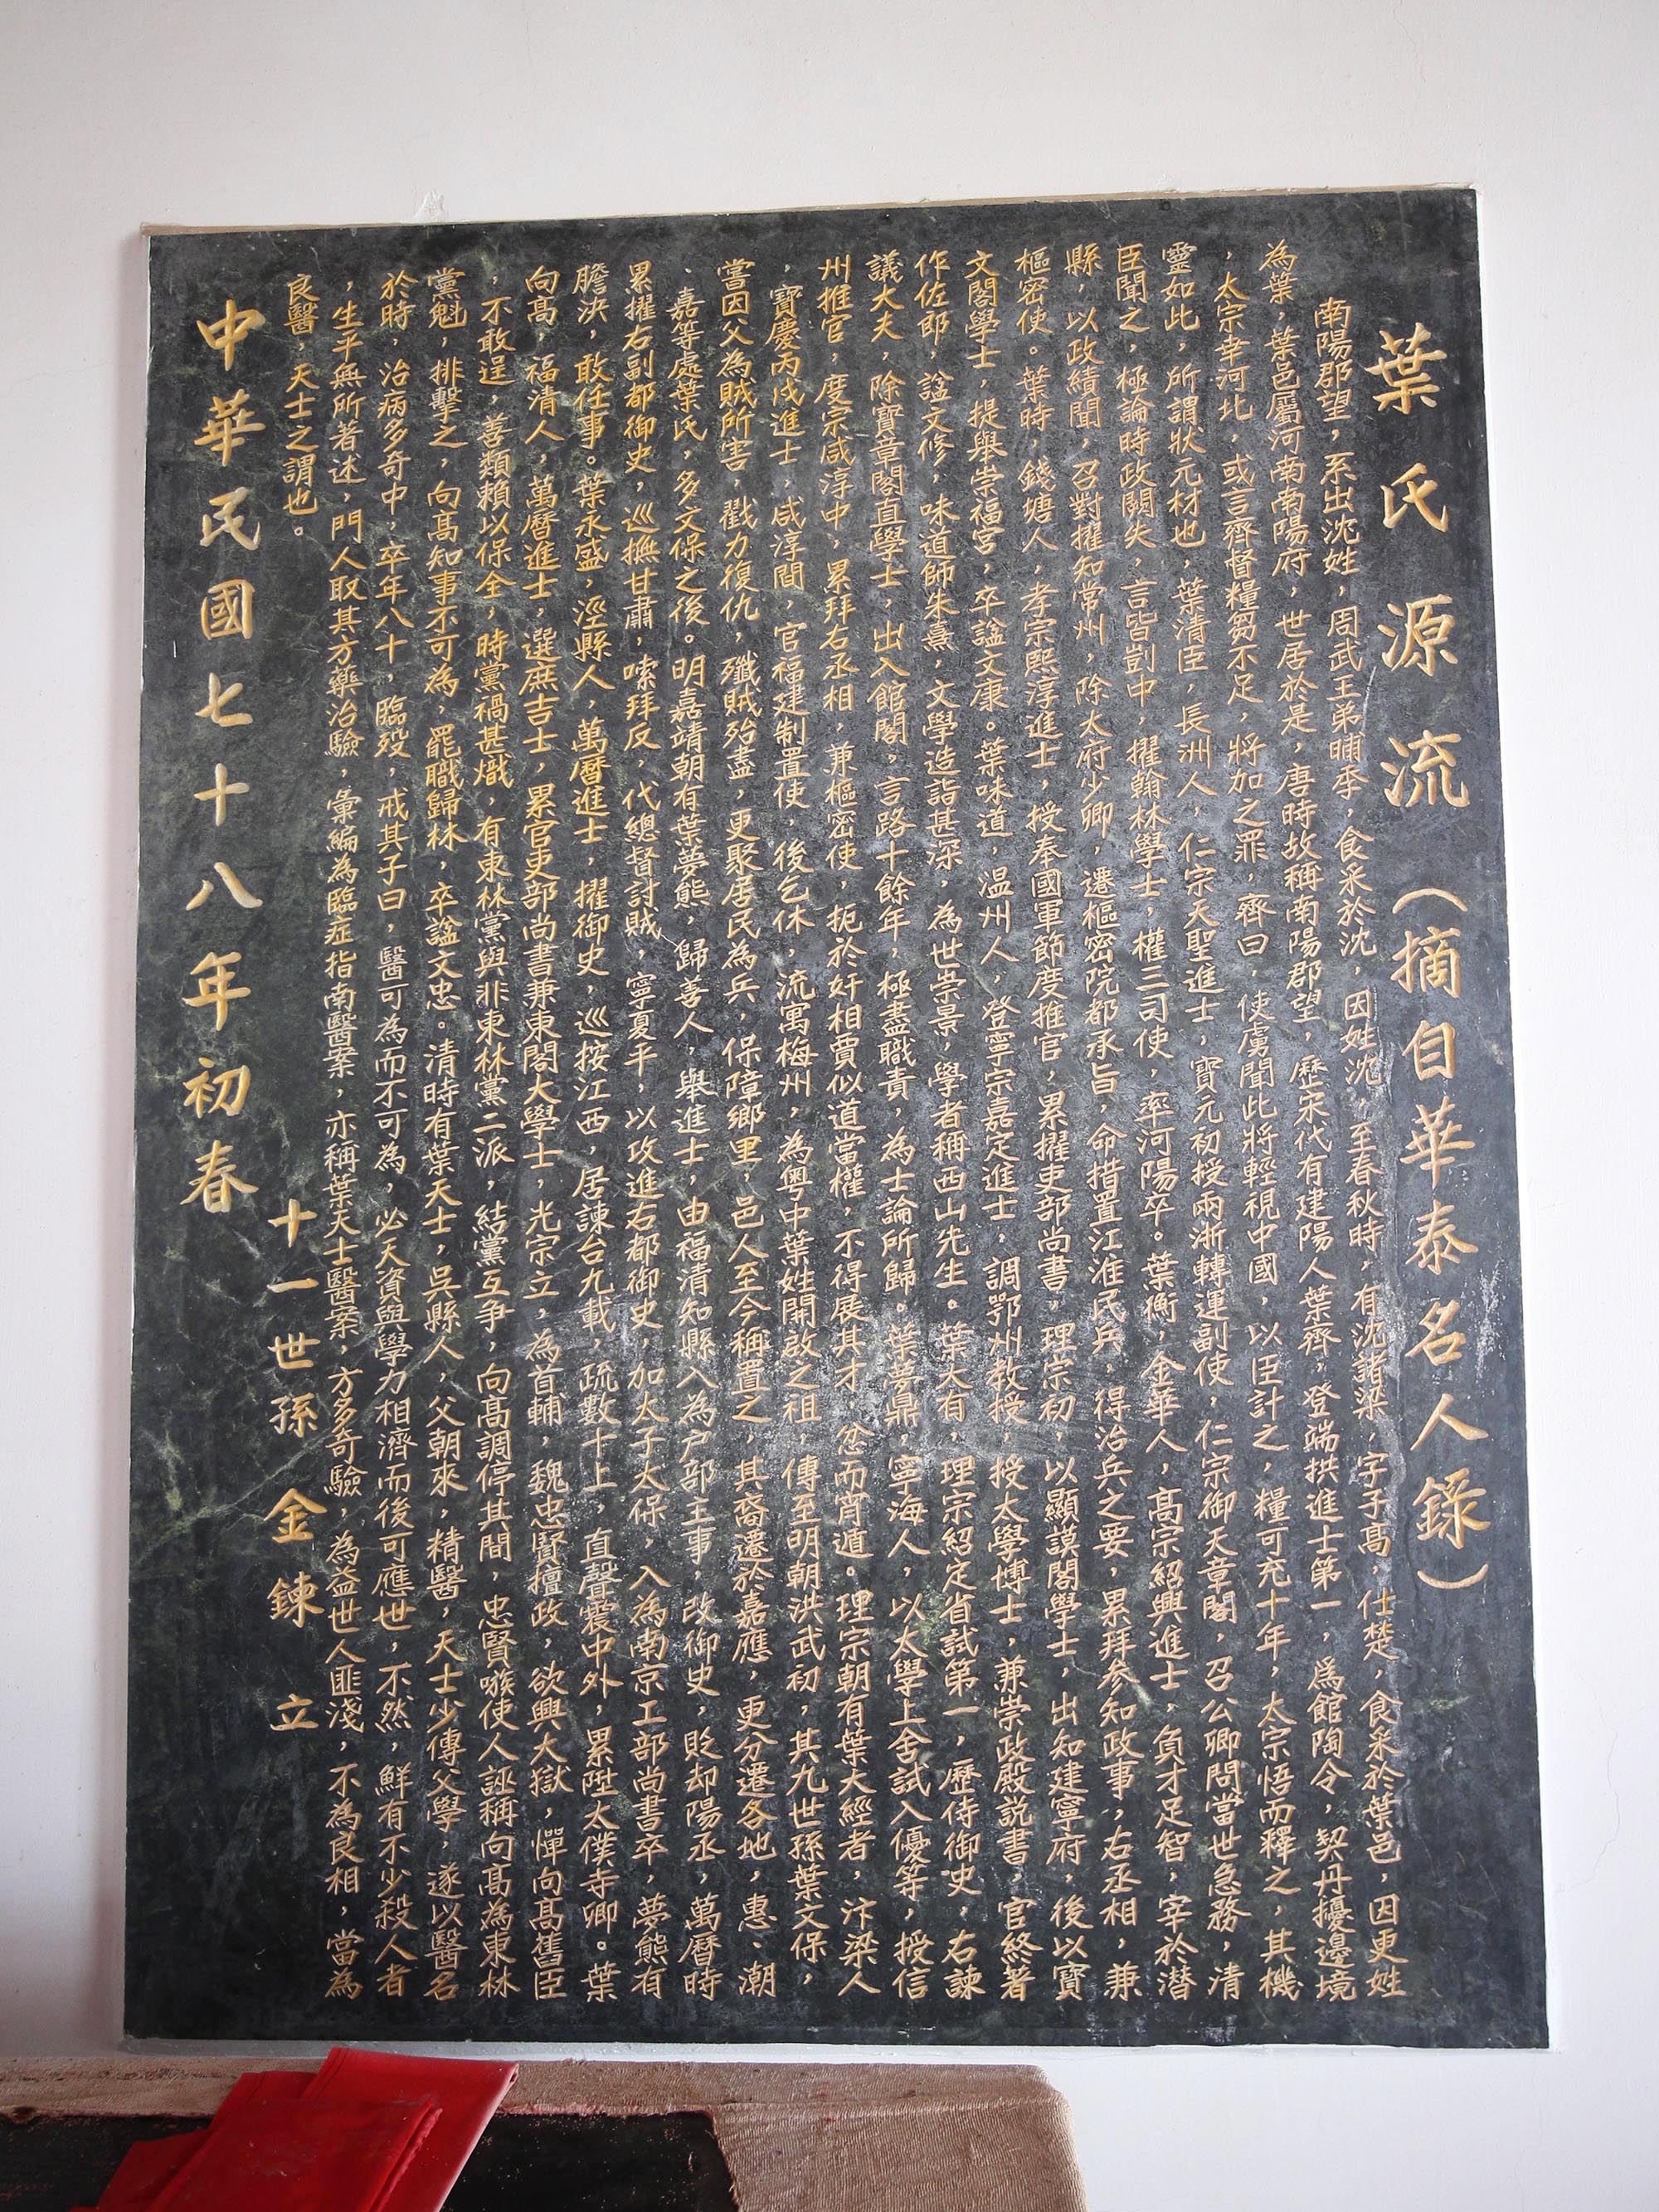 葉氏源流（摘自華泰名人錄）
南陽郡望，系出沈姓，周武王弟聃季，食采於沈，因姓沈，至春秋時，有沈諸梁，字子高，仕楚，食采於葉邑，因更姓
為葉，葉邑屬河南南陽府，世居於是，唐時故稱南陽郡望，歷宋代有建陽人葉齊，登端拱進士第一，為館陶令，契丹擾邊境
，太宗幸河北，或言齊督糧芻不足，將加之罪，齊曰，使虜聞此將輕視中國，以臣計之，糧可充十年，太宗悟而釋之，其機
靈如此，所謂狀元材也，葉清臣，長洲人，仁宗天聖進士，寶元初授兩浙轉運副使，仁宗御天章閣，召公卿問當世急務，清
臣聞之，極論時政闕失，言皆剴中，擢翰林學士，權三司使，率河陽卒。葉衡，金華人，高宗紹興進士，負才足智，宰於潜
縣，以政績聞，召對擢知常州，除太府少卿，遷樞密院都承旨，命措置江淮民兵，得治兵之要，累拜參知政事，右丞相，兼
樞密使。葉時，錢塘人，孝宗熙淳進士，授奉國軍節度推官，累擢吏部尚書，理宗初，以顯謨閣學士，出知建寧府，後以寶
文閣學士，提舉崇福宮，卒諡文康。葉味道，温州人，登寧宗嘉定進士，調鄂州教授，授太學博士，兼崇政殿說書，官終著
作佐郎，諡文修，味道師朱熹，文學造詣甚深，為世崇景，學者稱西山先生。葉大有，理宗紹定省試第一，歷侍御史，右諫
議大夫，除寶章閣直學士，出入館閣，言路十餘年，極盡職責，為士論所歸。葉夢鼎，寧海人，以太學上舍試入優等，授信
州推官，度宗咸淳中，累拜右丞相，兼樞密使，扼於奸相賈似道當權，不得展其才，忿而宵遁。理宗朝有葉大經者，汴梁人
，寶慶丙戌進士，咸淳間，官福建制置使，後乞休，流寓梅州，為粵中葉姓開啟之祖，傳至明朝洪武初，其九世孫葉文保，
當因父為賊所害，戮力復仇，殲賊殆盡，更聚居民為兵，保障鄉里，邑人至今稱置之，其裔遷於嘉應，更分遷各地，惠、潮
、嘉等處葉氏，多文保之後。明嘉靖朝有葉夢熊，歸善人，舉進士，由福清知縣入為户部主事，改御史，貶却陽丞，萬曆時
累擢右副都御史，巡撫甘肅，嗦拜反，代總督討賊，寧夏平，以攻進右都御史，加太子太保，入為南京工部尚書卒，夢熊有
膽決，敢任事。葉永盛，涇縣人，萬曆進士，擢御史，巡按江西，居諫台九載，疏數十上，直聲震中外，累陞太僕寺卿。葉
向高，福清人，萬曆進士，選庶吉士，累官吏部尚書兼東閣大學士，光宗立，為首輔，魏忠賢擅政，欲興大獄，憚向高舊臣
，不敢逞，善類賴以保全，時黨禍甚熾，有東林黨與非東林黨二派，結黨互爭，向高調停其間，忠賢嗾使人誣稱向高為東林
黨魁，排擊之，向高知事不可為，罷職歸林，卒諡文忠。清時有葉天士，吳縣人，父朝來，精醫，天士少傳父學，遂以醫名
於時，治病多奇中，卒年八十，臨歿，戒其子曰，醫可為而不可為，必天資與學力相濟而後可應世，不然，鮮有不少殺人者
，生平無所著述，門人取其方藥治驗，彙編為臨症指南醫案，亦稱葉天士醫案，方多奇驗，為益世人匪淺，不為良相，當為
良醫，天士之謂也。
十一世孫 金鍊 立
中華民國七十八年初春